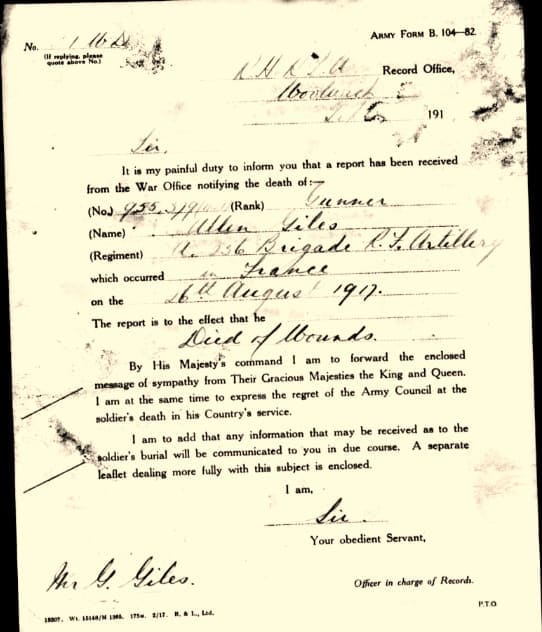 ARMY FORM B. 104—82.
No.
(If replying, please
quote above No.)
Record Office,
Woolwich
191
Sir,
It is my painful duty to inform you that a report has been received
from the War Office notifying the death of :—
(No.) 955 (Rank) Gunner
(Name) Allen Giles
(Regiment) A. 256 Brigade R. F. Artillery
which occurred in France
on the 26th August 1917.
The report is to the effect that he
Died of Wounds.
By His Majesty's command I am to forward the enclosed
message of sympathy from Their Gracious Majesties the King and Queen.
I am at the same time to express the regret of the Army Council at the
soldier's death in his Country's service.
I am to add that any information that may be received as to the
soldier's burial will be communicated to you in due course. A separate
leaflet dealing more fully with this subject is enclosed.
I am,
Sir.
Your obedient Servant,
Mr G. Giles.
Officer in charge of Records.
P.T.O
Wt. 175m. 2/17. R. & L., Ltd.